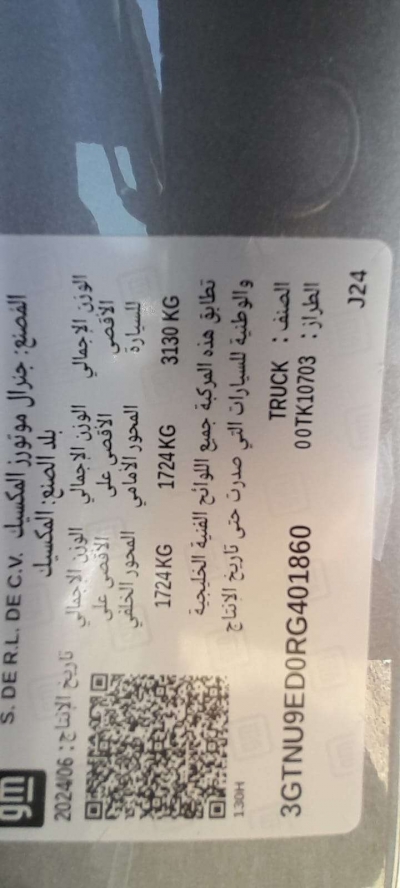 gm
S. DE R.L. DE C.V. المصنع: جنرال موتورز المكسيك
بلد الصنع: المكسيك
تاريخ الإنتاج: 2024/06
الوزن الإجمالي الأقصى للسيارة
3130 KG
الوزن الإجمالي الأقصى على المحور الأمامي
1724 KG
الوزن الإجمالي الأقصى على المحور الخلفي
1724 KG
تطابق هذه المركبة جميع اللوائح الفنية الخليجية
والوطنية للسيارات التي صدرت حتى تاريخ الإنتاج
130H
الصنف: TRUCK
3GTNU9ED0RG401860 الطراز: 00TK10703
J24